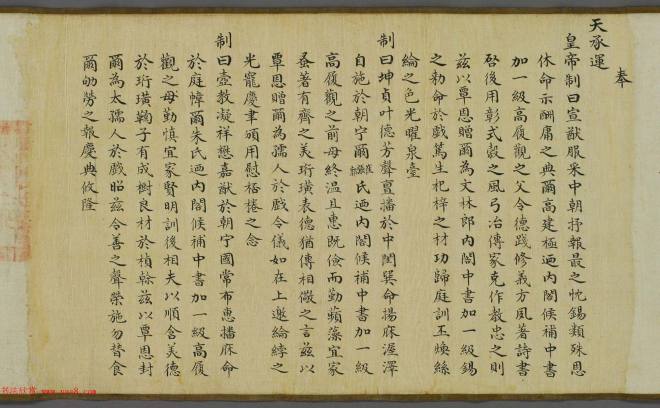 奉
天承運
皇帝制曰宣猷服采中朝抒報最之忱錫類殊恩
休命示酬庸之典爾高建極迺內閣候補中書
加一級高履觀之父令德踐修義方風著詩書
啓後用彰式穀之風弓冶傳家克作教忠之則
茲以覃恩贈爾為文林郎內閣中書加一級錫
之勅命於戲篤生杞梓之材功歸庭訓丕煥絲
綸之色光曜泉臺
制曰坤貞叶德芳聲亶播於中閨巽命揚庥渥澤
自施於朝宁爾氏迺內閣候補中書加一級
高履觀之前母終温且惠既儉而勤蘋藻宜家
蚤著有齊之美珩璜表德猶傳相儆之言茲以
覃恩贈爾為孺人於戲令儀如在上邀綸綍之
光寵慶聿頒用慰桮棬之念
制曰壼教凝祥懋嘉猷於朝宁國常布惠播庥命
於庭幃爾朱氏迺內閣候補中書加一級高履
觀之母勤慎宜家賢明訓後相夫以順含美德
於珩璜鞠子有成樹良材於楨榦茲以覃恩封
爾為太孺人於戲昭茲令善之聲榮施勿替食
爾劬勞之報慶典攸隆
书法欣赏 www.yac8.com